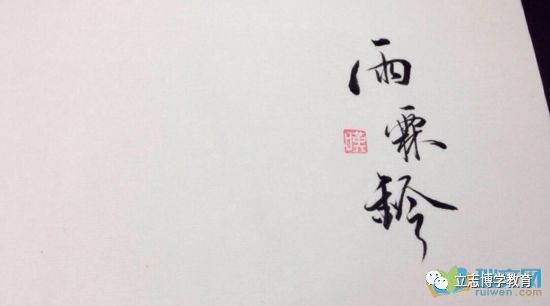 雨霖鈴
立志博学教育
ruiwen.com